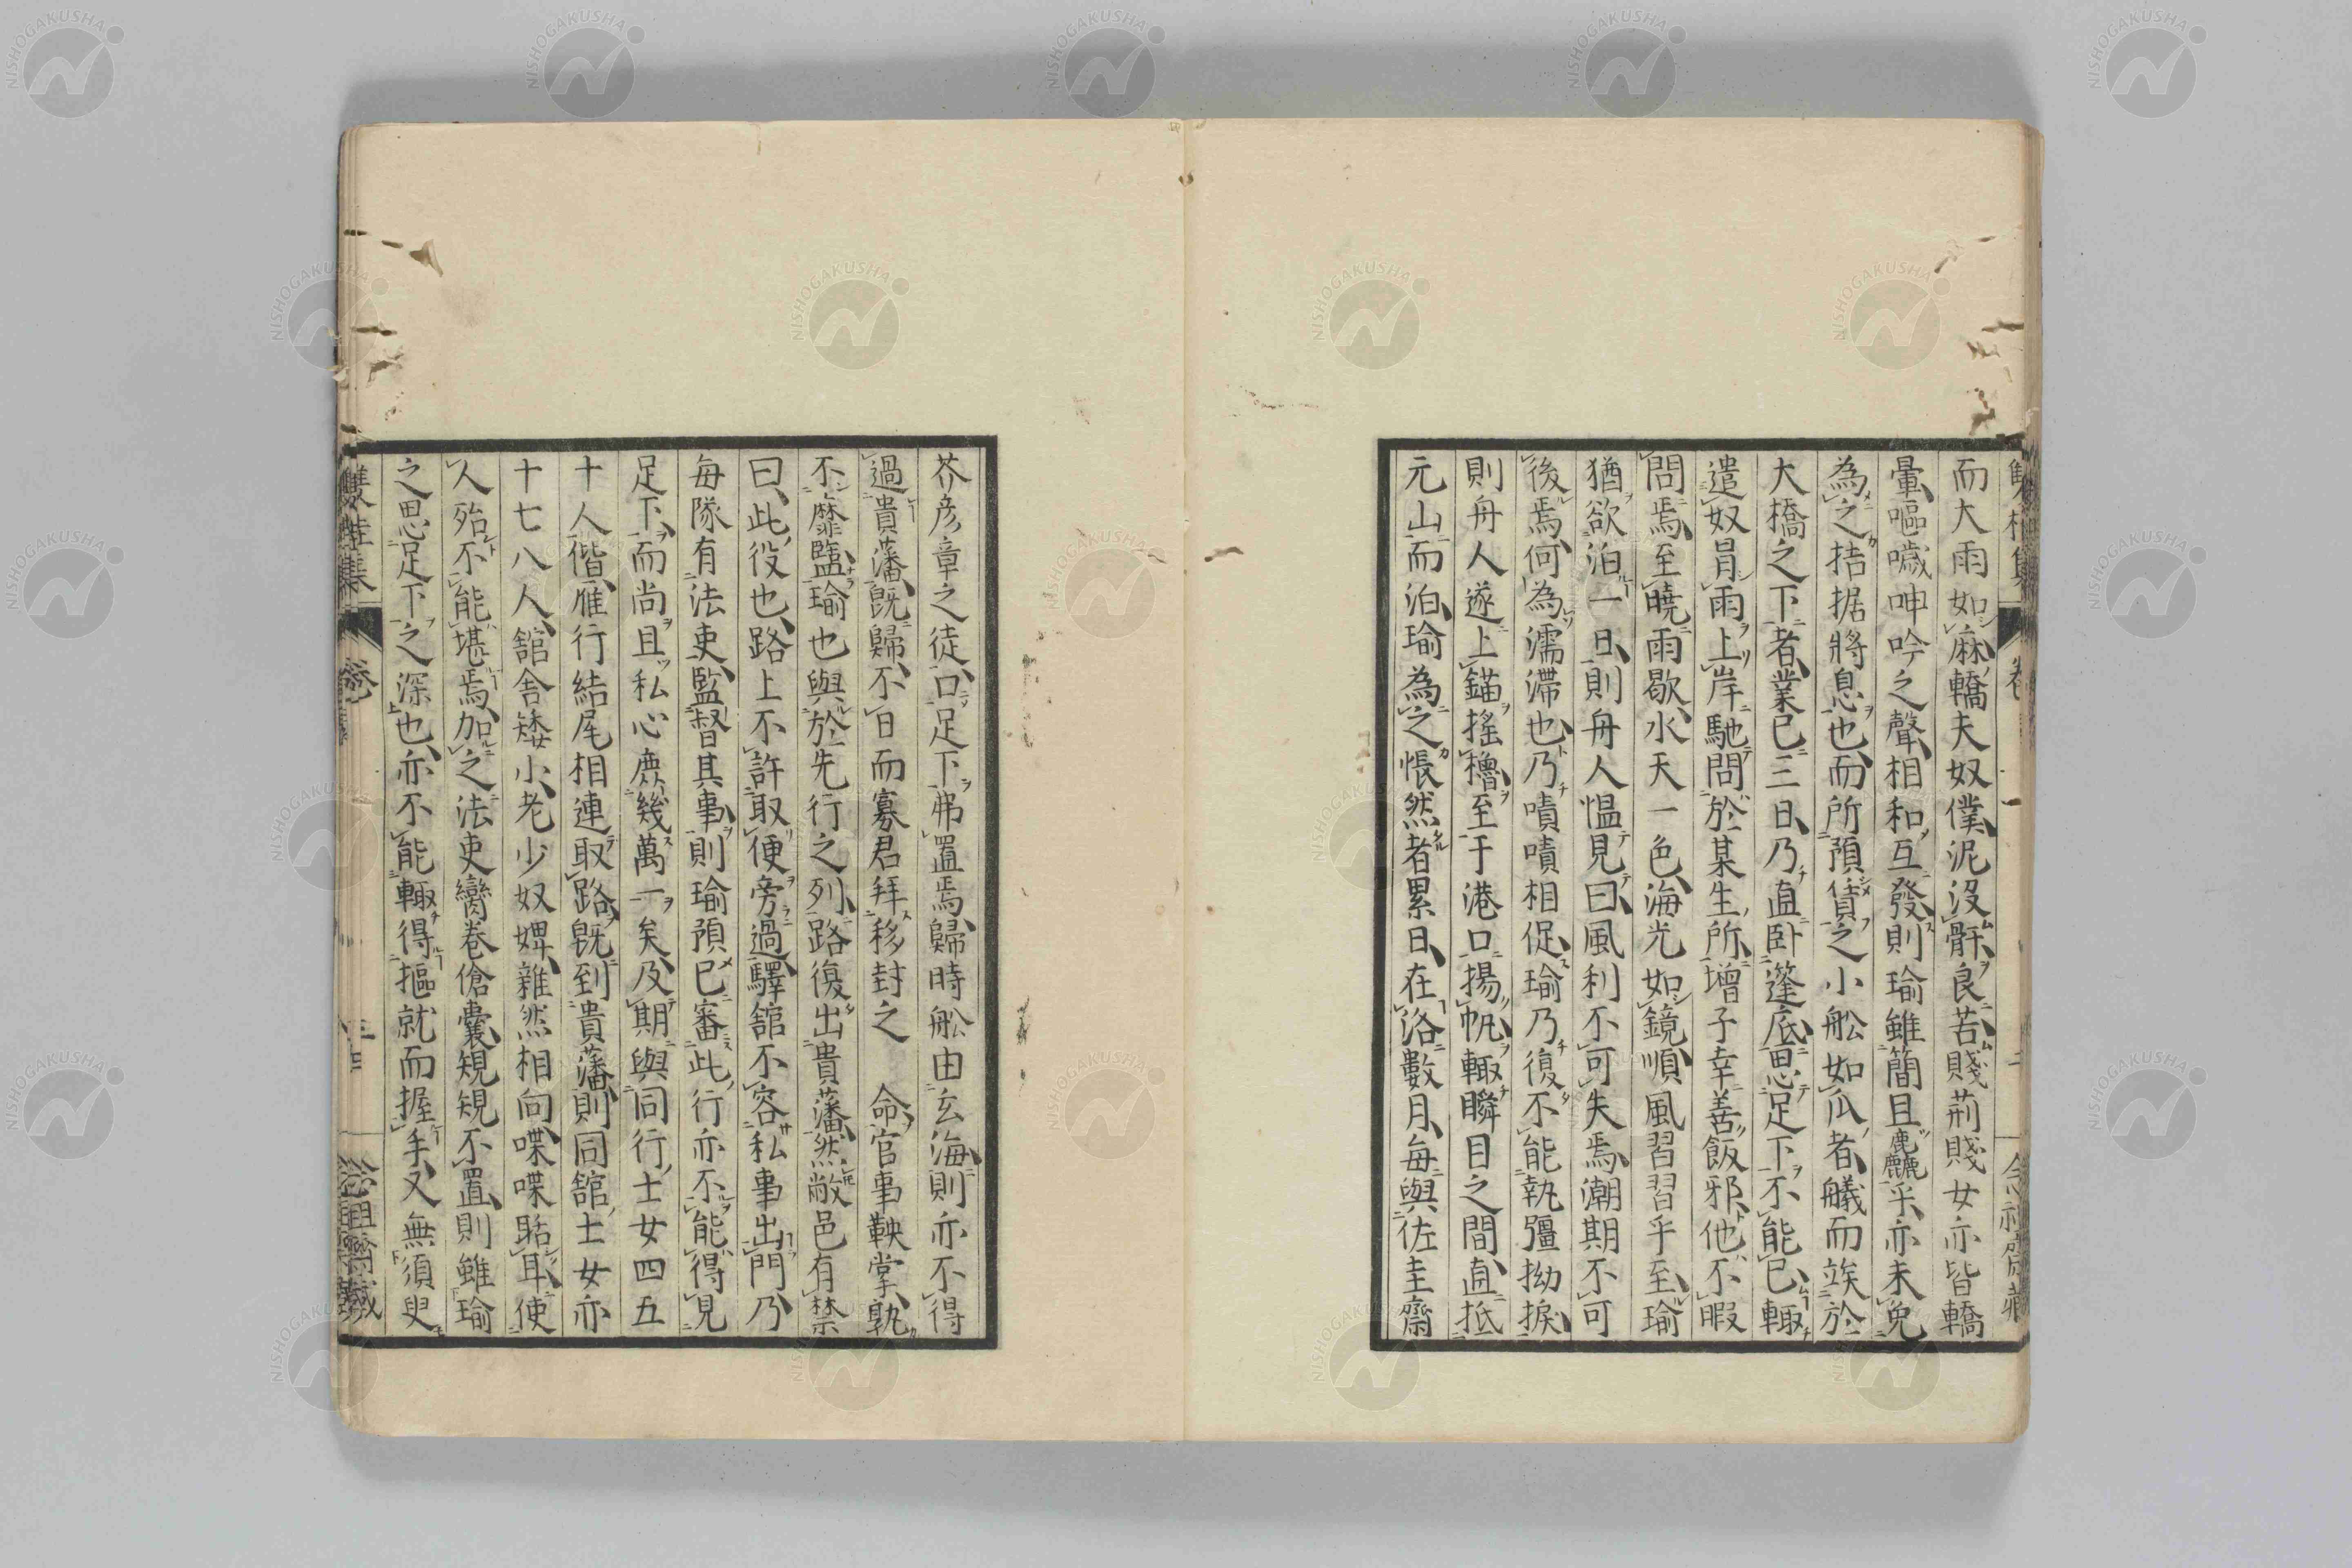 而大雨如麻轎夫奴僕泥沒骭良苦賤荊賤女亦皆轎
暈嘔噦呻吟之聲相和互發則瑜雖簡且麤乎亦未免
為之拮据將息也而所預賃之小舩如瓜者艤而竢於
大橋之下者業已三日乃直臥篷底思足下不能已輙
遣奴冐雨上岸馳問於某生所增子幸善飯邪他不暇
問焉至曉雨歇水天一色海光如鏡順風習習乎至瑜
猶欲泊一日則舟人慍見曰風利不可失焉潮期不可
後焉何為濡滯也乃嘖嘖相促瑜乃復不能執彊拗捩
則舟人遂上錨搖櫓至于港口揚帆輙瞬目之間直抵
元山而泊瑜為之悵然者累日在洛數月每與佐圭齋
芥彦章之徒口足下弗置焉歸時舩由玄海則亦不得
過貴藩既歸不日而寡君拜移封之 命官事鞅掌孰
不靡盬瑜也與於先行之列路復出貴藩然敝邑有禁
曰此役也路上不許取便旁過驛舘不容私事出門乃
每隊有法吏監督其事則瑜預已審此行亦不能得見
足下而尚且私心庶幾萬一矣及期與同行士女四五
十人偕雁行結尾相連取路既到貴藩則同舘士女亦
十七八人舘舍矮小老少奴婢雜然相向喋喋聒耳使
人殆不能堪焉加之法吏臠卷傖囊規規不置則雖瑜
之思足下之深也亦不能輙得摳就而握手又無須臾
雙桂集
卷